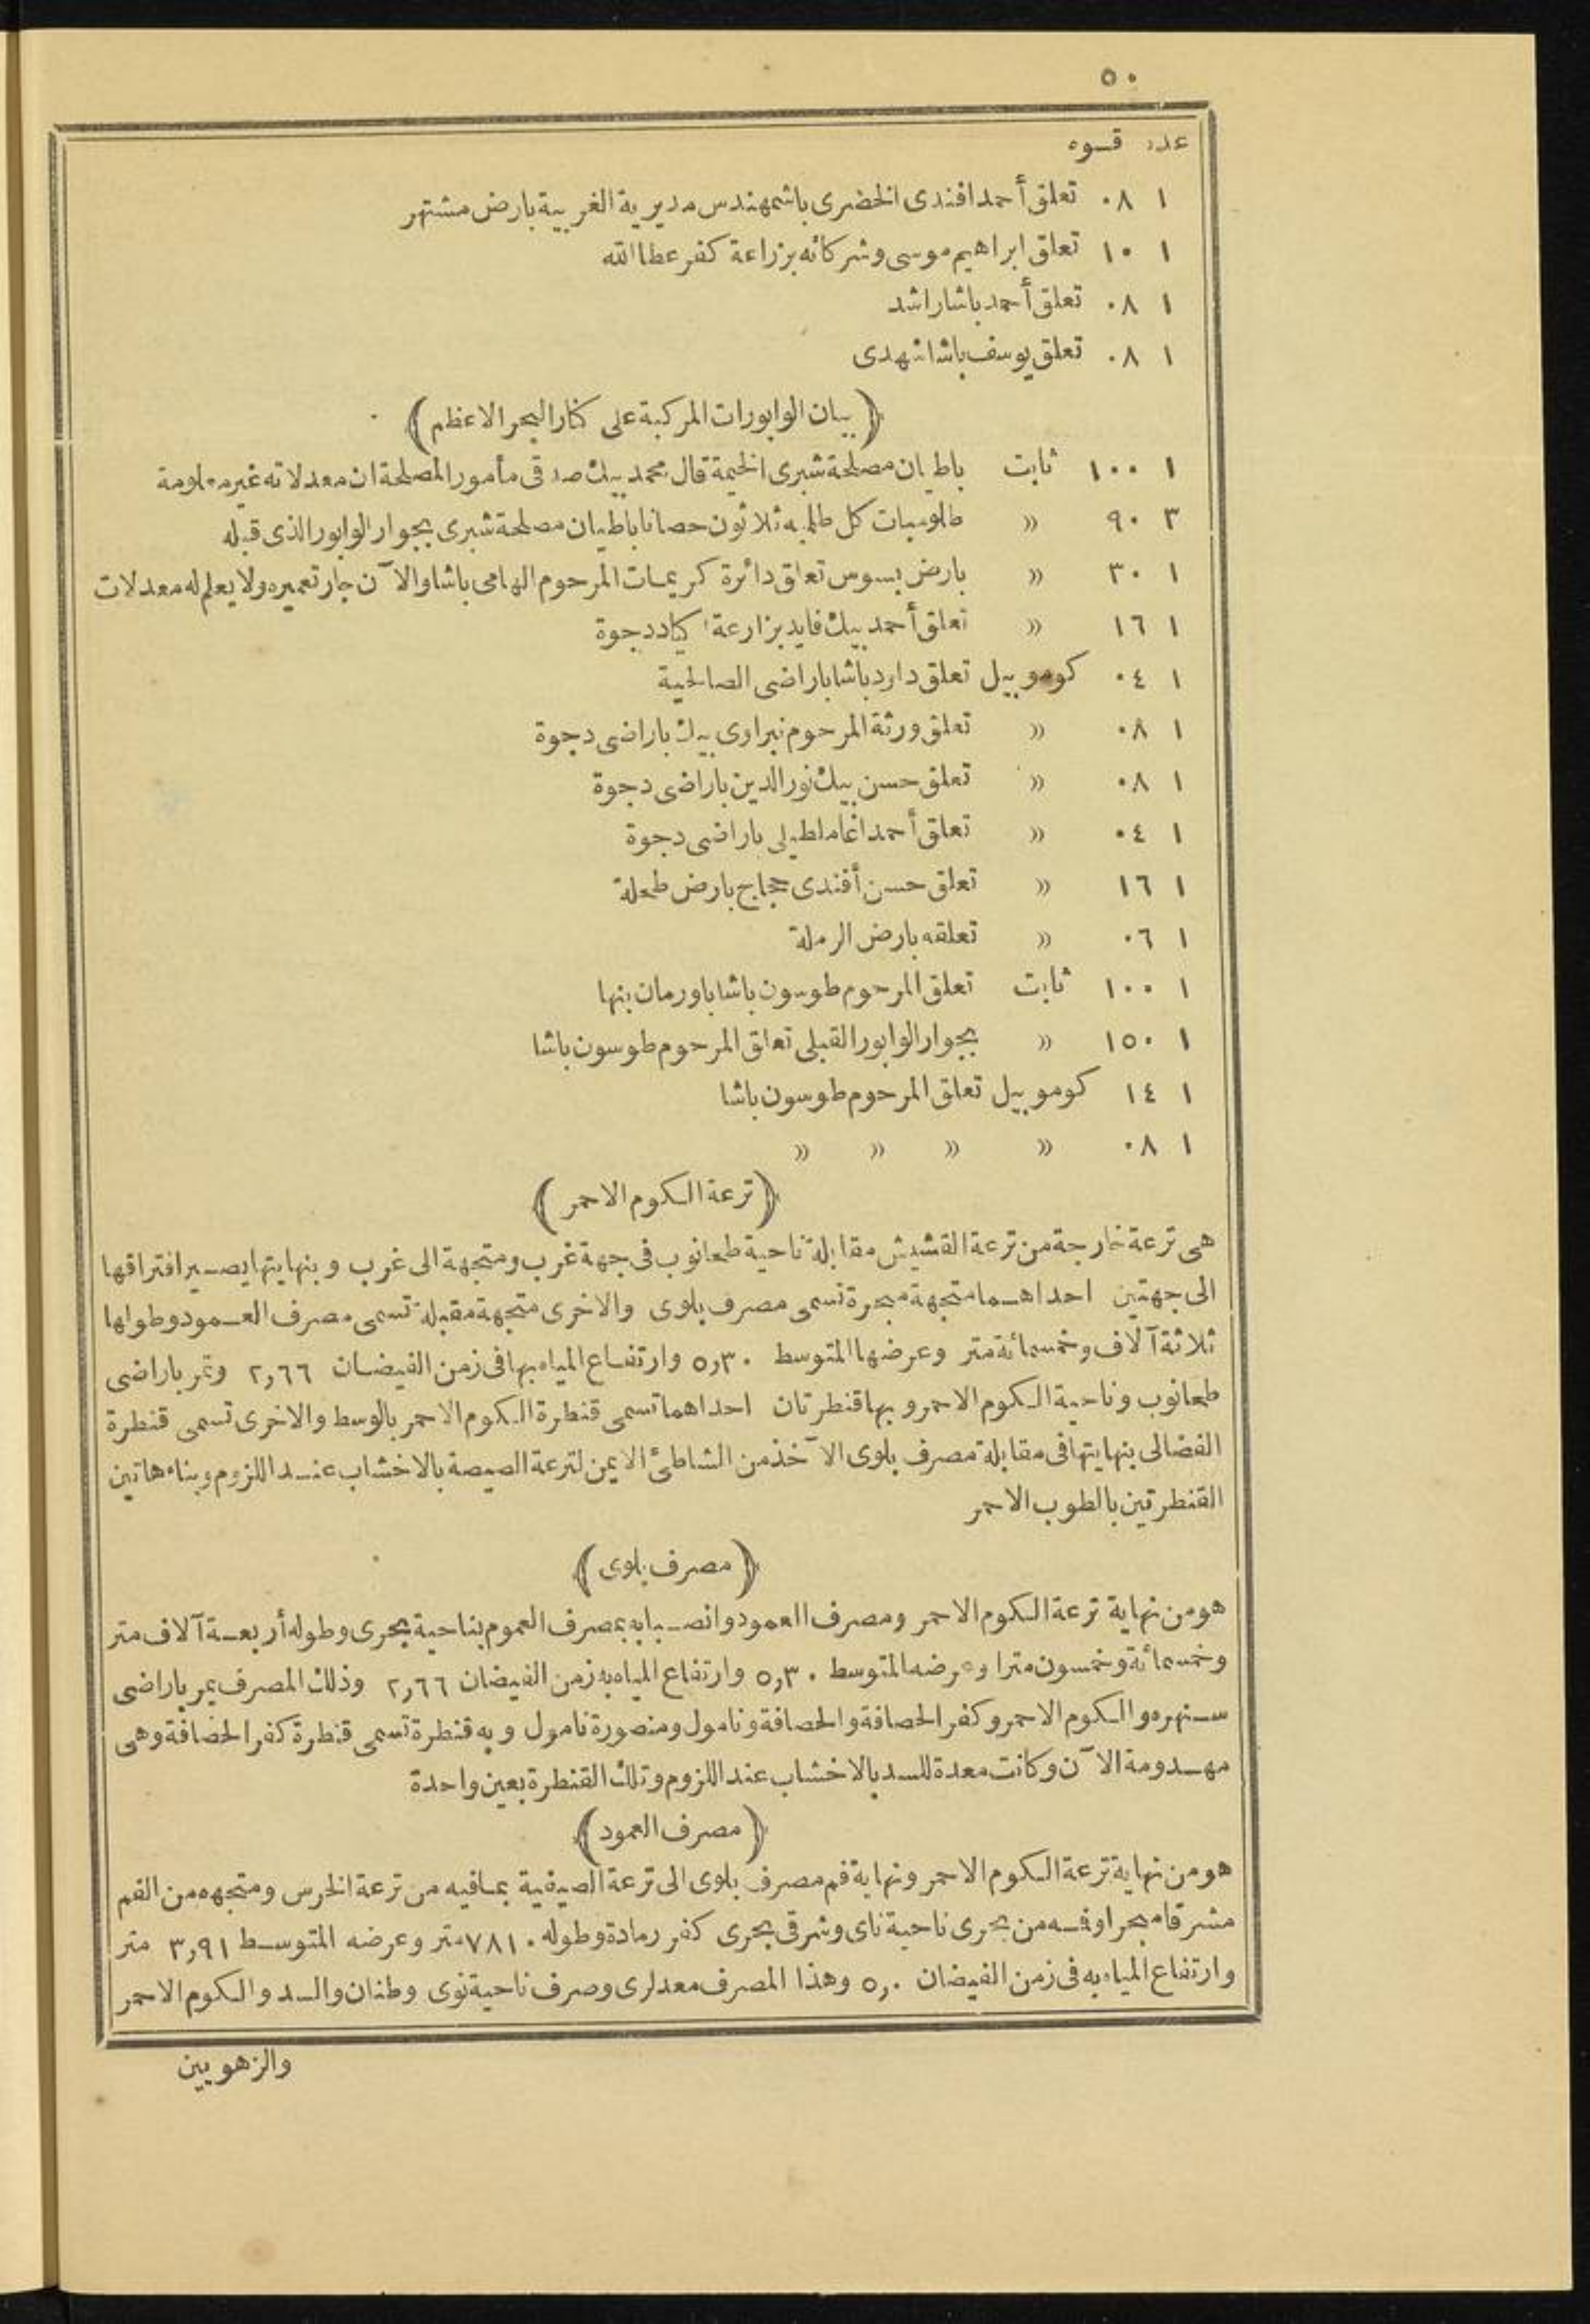 ٥٠
عدد قوه
١ ٠٨ تعلق أحمد افندى الخضرى باشمهندس مديرية الغربية بارض مشتهر
١ ١٠ تعلق ابراهيم موسى وشركائه بزراعة كفر عطا الله
١ ٠٨ تعلق أحمد باشا راشد
١ ٠٨ تعلق يوسف باشا شهدى
﴿ بيان الوابورات المركبة على كنار البحر الاعظم ﴾
١ ١٠٠ ثابت باطيان مصلحة شبرى الخيمة قال محمد بيك صدقى مأمور المصلحة ان معدلاته غير معلومة
٣ ٩٠ » طلومبات كل طلمبه ثلاثون حصانا باطيان مصلحة شبرى بجوار الوابور الذى قبله
١ ٣٠ » بارض بسوس تعلق دائرة كريمات المرحوم الهامى باشا والآن جار تعميره ولا يعلم له معدلات
١ ١٦ » تعلق أحمد بيك فايد بزارعة اكياد دجوة
١ ٠٤ كوموبيل تعلق داود باشا باراضى الصالحية
١ ٠٨ » تعلق ورثة المرحوم نبراوى بيك باراضى دجوة
١ ٠٨ » تعلق حسن بيك نور الدين باراضى دجوة
١ ٠٤ » تعلق أحمد اغا ملطيلى باراضى دجوة
١ ١٦ » تعلق حسن أفندى حجاج بارض طحلة
١ ٠٦ » تعلقه بارض الرملة
١ ١٠٠ ثابت تعلق المرحوم طوسون باشا باورمان بنها
١ ١٥٠ » بجوار الوابور القبلى تعلق المرحوم طوسون باشا
١ ١٤ كوموبيل تعلق المرحوم طوسون باشا
١ ٠٨ » » » »
﴿ ترعة الكوم الاحمر ﴾
هى ترعة خارجة من ترعة القشيش مقابلة ناحية طحانوب فى جهة غرب ومتجهة الى غرب وبنهايتها يصير افتراقها
الى جهتين احداهما متجهة مبحرة تسمى مصرف بلوى والاخرى متجهة مقبلة تسمى مصرف العمود وطولها
ثلاثة آلاف وخمسمائة متر وعرضها المتوسط ٥,٣٠ وارتفاع المياه بها فى زمن الفيضان ٢,٦٦ وتمر باراضى
طحانوب وناحية الكوم الاحمر وبها قنطرتان احداهما تسمى قنطرة الكوم الاحمر بالوسط والاخرى تسمى قنطرة
الفضالى بنهايتها فى مقابلة مصرف بلوى الآخذ من الشاطئ الايمن لترعة الصيصة بالاخشاب عند اللزوم وبناء هاتين
القنطرتين بالطوب الاحمر
﴿ مصرف بلوى ﴾
هو من نهاية ترعة الكوم الاحمر ومصرف العمود وانصبابه بمصرف العموم بناحية بحرى وطوله أربعة آلاف متر
وخمسمائة وخمسون مترا وعرضه المتوسط ٥,٣٠ وارتفاع المياه به زمن الفيضان ٢,٦٦ وذلك المصرف يمر باراضى
سنهره والكوم الاحمر وكفر الحصافة والحصافة ونامول ومنصورة نامول وبه قنطرة تسمى قنطرة كفر الحصافة وهى
مهدومة الآن وكانت معدة للسد بالاخشاب عند اللزوم وتلك القنطرة بعين واحدة
﴿ مصرف العمود ﴾
هو من نهاية ترعة الكوم الاحمر ونهاية فم مصرف بلوى الى ترعة الصيفية بمافيه من ترعة الخرس ومتجهه من الفم
مشرقا مبحرا وفمه من بحرى ناحية ناى وشرقى بحرى كفر رمادة وطوله ٧٨١٠ متر وعرضه المتوسط ٣,٩١ متر
وارتفاع المياه به فى زمن الفيضان ٥,٠ وهذا المصرف معد لرى وصرف ناحية نوى وطنان والسد والكوم الاحمر
والزهويين